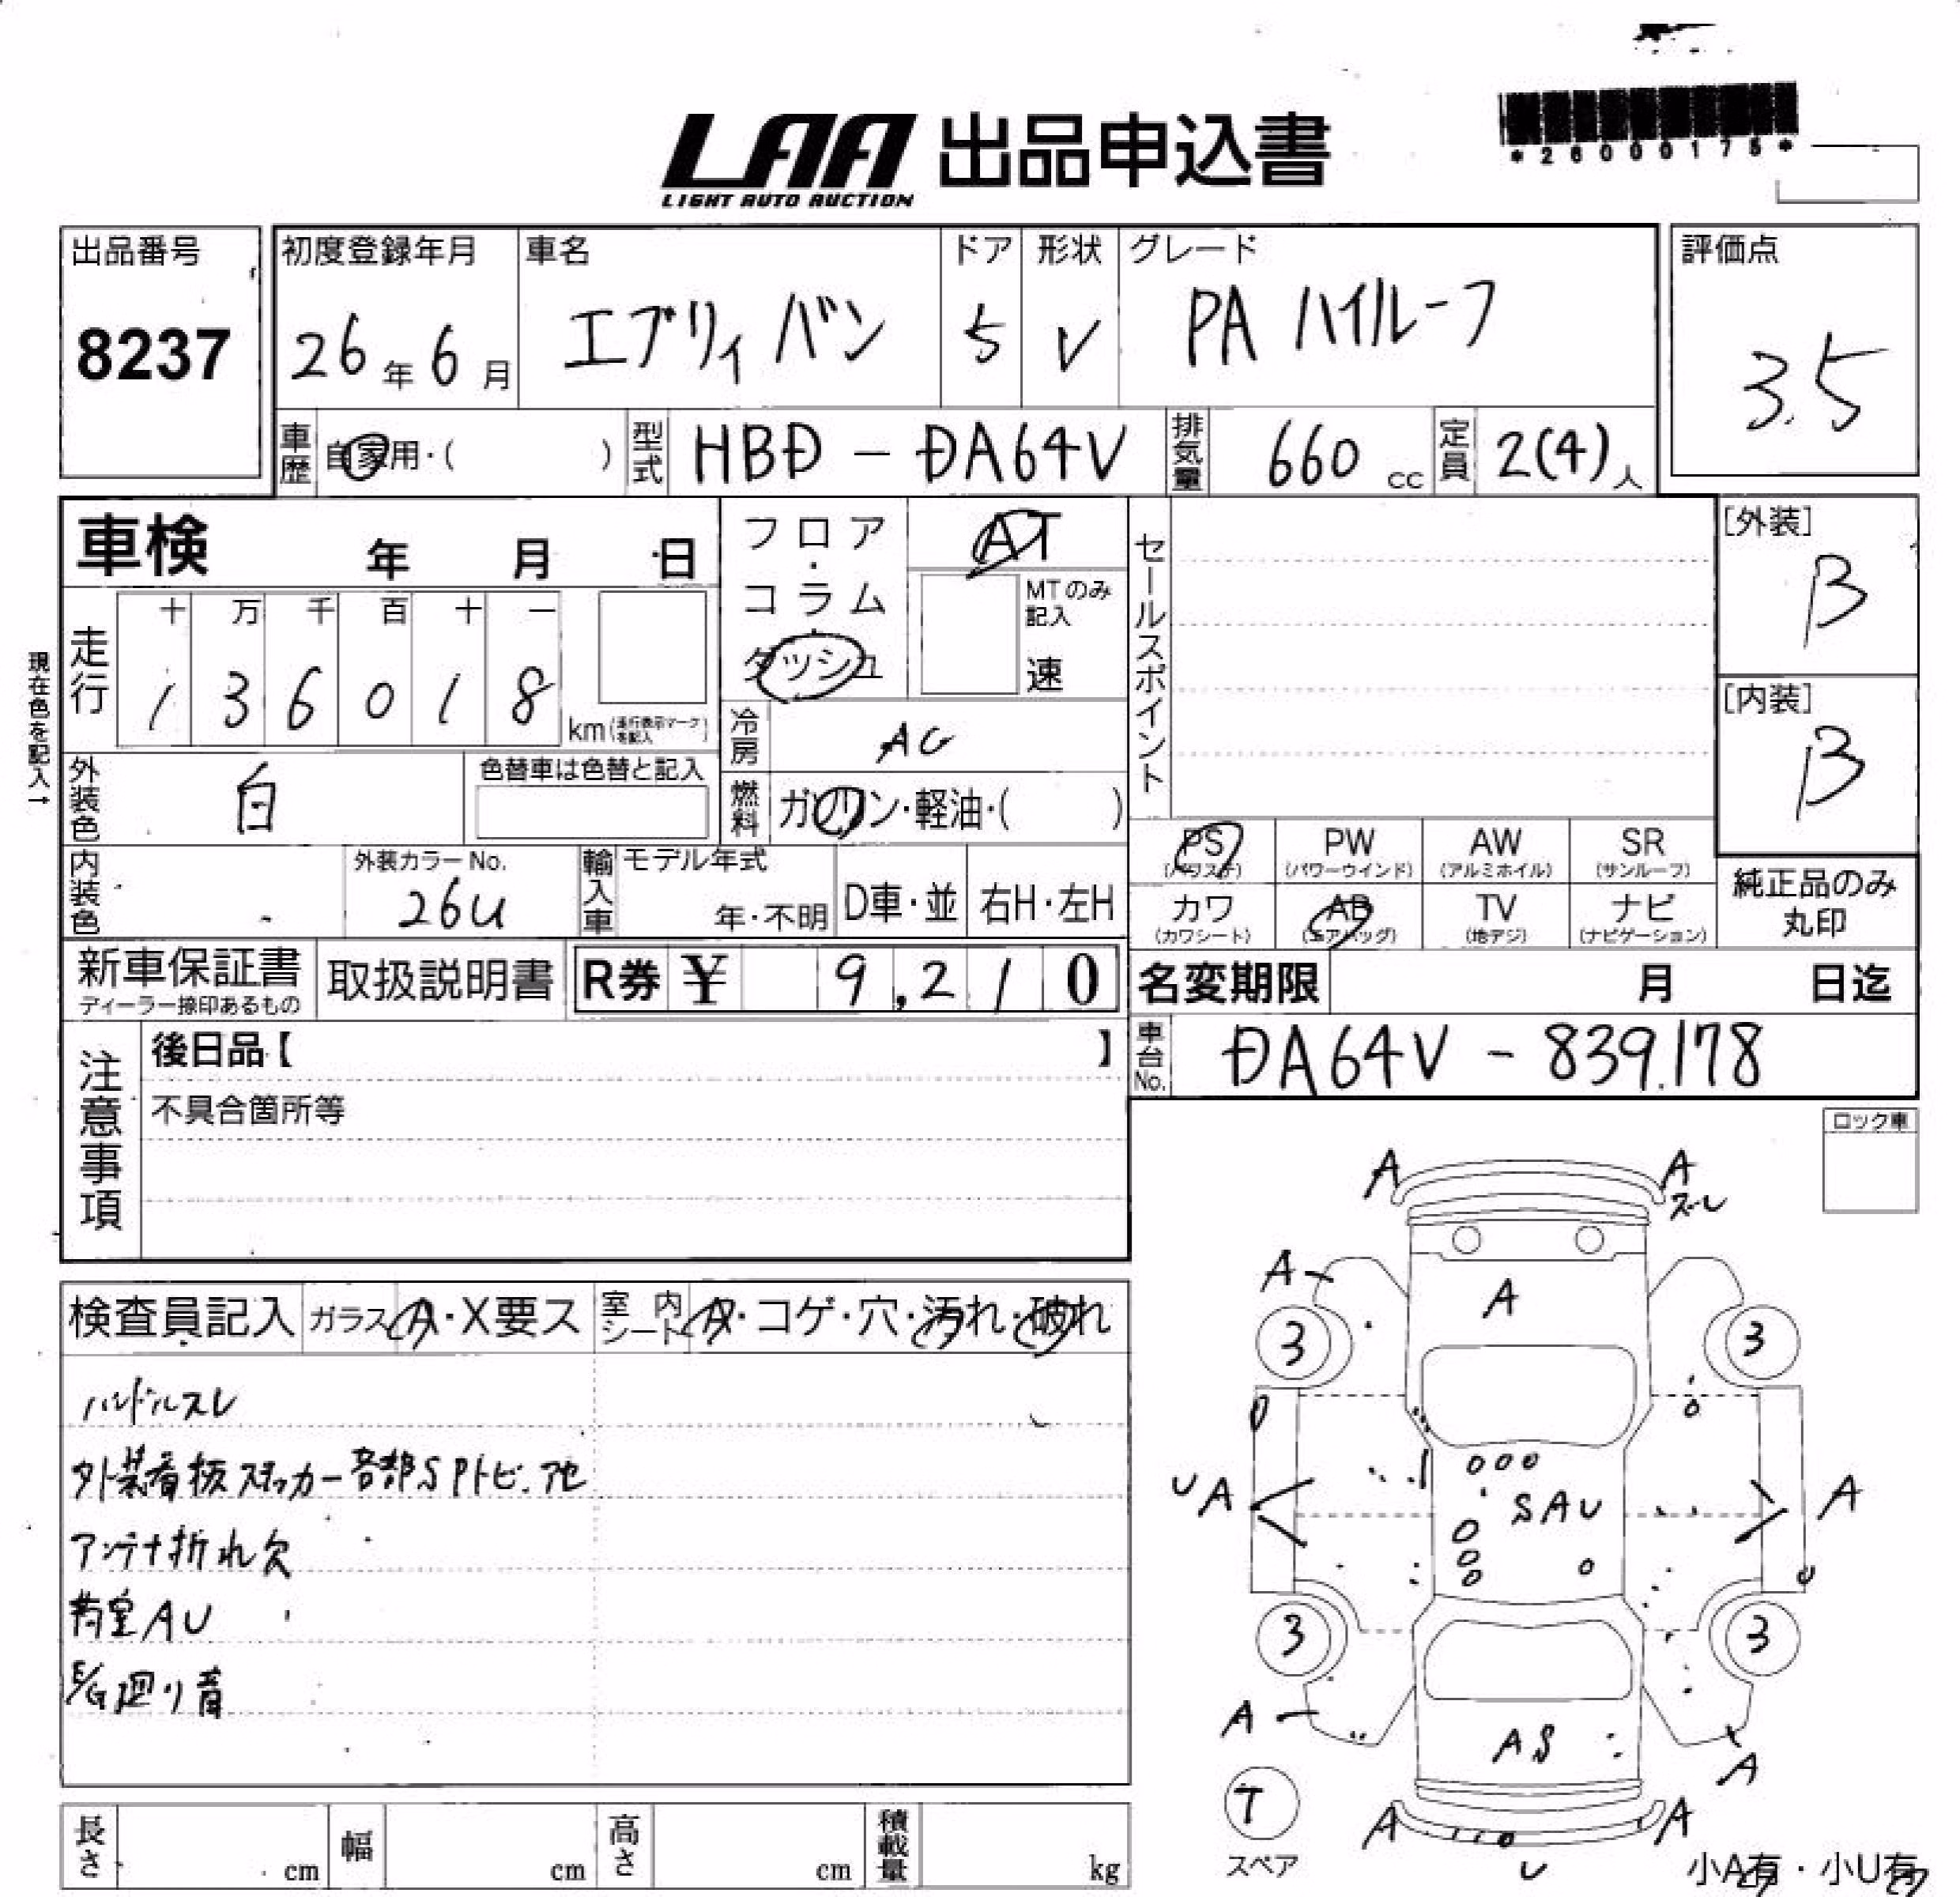 *26000175*
LAA 出品申込書
LIGHT AUTO AUCTION
出品番号
8237
初度登録年月
26年6月
車名
エブリィ バン
ドア
5
形状
V
グレード
PA ハイルーフ
評価点
3.5
車歴
自家用・( )
型式
HBD - DA64V
排気量
660 cc
定員
2(4)人
車検 年 月 日
フロア・コラム・ダッシュ
AT
MTのみ記入
速
セールスポイント
[外装]
B
[内装]
B
現在色を記入→
走行
十 万 千 百 十 一
1 3 6 0 1 8
km(走行表示マークを記入)
冷房
AC
外装色
白
色替車は色替と記入
燃料
ガソリン・軽油・( )
PS (パワステ)
PW (パワーウインド)
AW (アルミホイル)
SR (サンルーフ)
内装色
外装カラーNo.
26U
輸入車
モデル年式
年・不明
D車・並
右H・左H
カワ (カワシート)
AB (エアバッグ)
TV (地デジ)
ナビ (ナビゲーション)
純正品のみ
丸印
新車保証書
ディーラー捺印あるもの
取扱説明書
R券 ¥ 9,210
名変期限 月 日迄
車台No.
DA64V - 839.178
注意事項
後日品【 】
不具合箇所等
ロック車
検査員記入
ガラス A・X要ス
室内シート A・コゲ・穴・汚れ・破れ
ハンドルスレ
外装看板ステッカー
アンテナ折れ欠
荷室AU
E/G廻り音
A A
スレ
A A
3 3
UA SAU A
U
3 3
A AS A
T
スペア
A A
U
小A有・小U有
長さ cm
幅 cm
高さ cm
積載量 kg